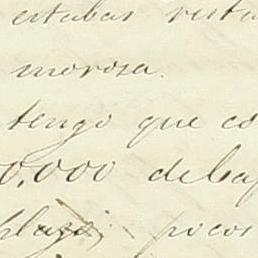 estabas resta
morosa.
tengo que co
0.000 debaj
plazo, pocos